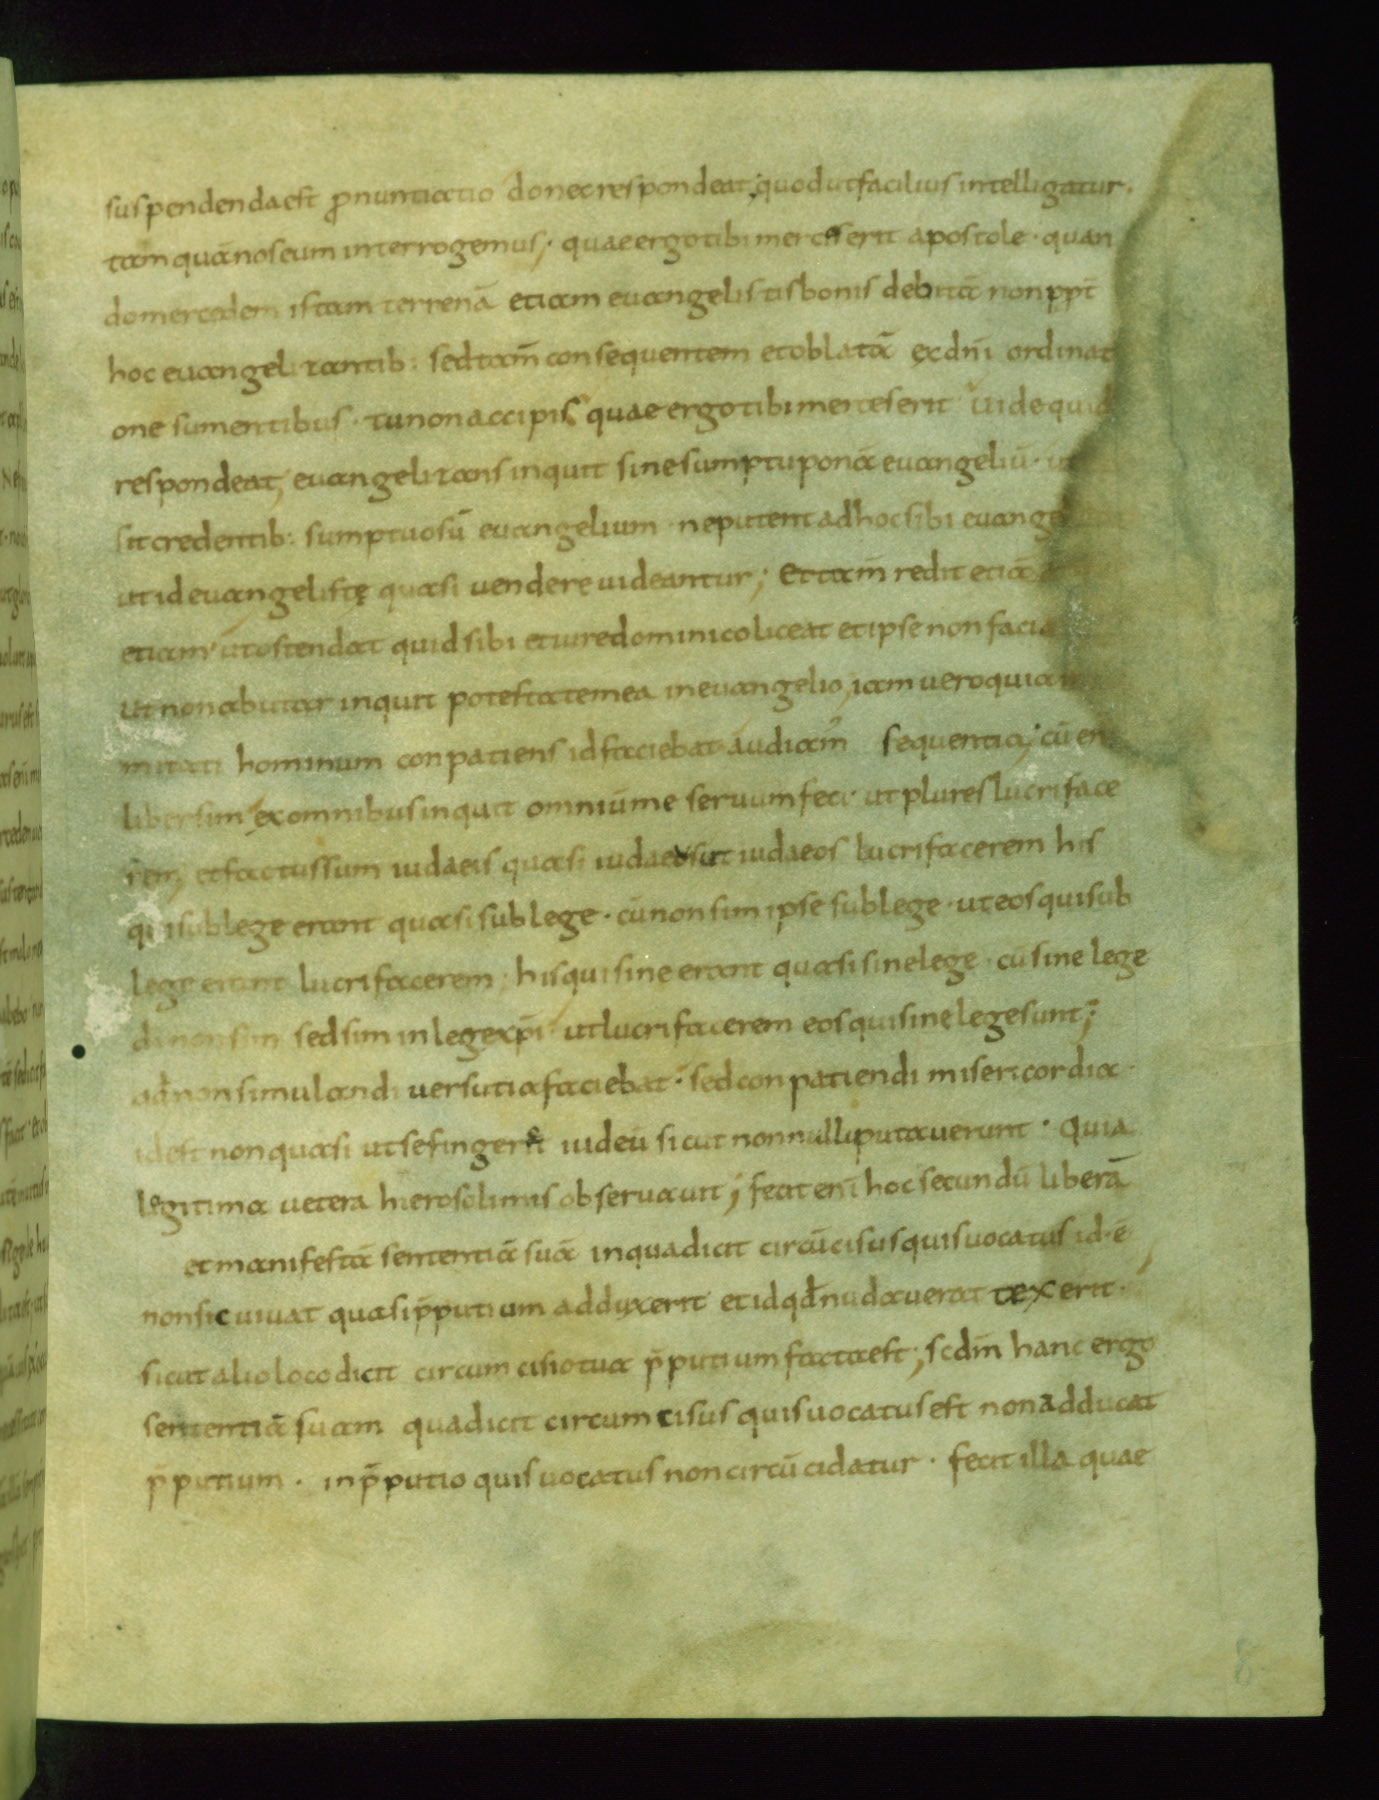 suspendenda est pronuntiatio donec respondeat; quod ut facilius intelligatur.
tam quā nos eum interrogemus; quae ergo tibi merces erit apostole · quan
do mercedem istam terrenā etiam evangelistis bonis debitā non ppt̄
hoc evangelizantib: sed tam̄ consequentem et oblatā ex dn̄i ordinat
one sumentibus · tu non accipis quae ergo tibi merces erit vide quid
respondeat; evangelizans inquit sine sumptu ponā evangeliū ·
sit credentib: sumptuosū evangelium · ne putent ad hoc sibi
ut id evangelistę quasi vendere videantur; Et tam̄ redit etiā
etiam ut ostendat quid sibi et iure dominico liceat et ipse non
ut non abutar inquit potestate mea in evangelio, iam vero quia
hominum conpatiens id faciebat audiam̄ sequentia; cū
liber sim ex omnibus inquit omniū me servum feci · ut plures lucriface
rem; et factus sum iudaeis quasi iudaeus ut iudaeos lucrifacerem his
qui sub lege erant quasi sub lege · cū non sim ipse sub lege · ut eos qui sub
lege erant lucrifacerem; his qui sine erant quasi sine lege · cū sine lege
dī non sim sed sim in lege xp̄i · ut lucrifacerem eos qui sine lege sunt;
qd̄ non simulandi versutia faciebat · sed conpatiendi misericordia ·
id est non quasi ut se fingeret iudeū sicut nonnulli putaverunt · Quia
legitima vetera hierosolimis observavit; fecit enī hoc secundū liberā
et manifestā sententiā suā in qua dicit circūcisus quis vocatus id · ē
non sic vivat quasi p̄putium adduxerit et id qd̄ nudaverat texerit ·
sicut alio loco dicit circumcisio tua p̄putium facta est; scdm̄ hanc ergo
sententiā suam qua dicit circumcisus quis vocatus est non adducat
p̄putium · in p̄putio quis vocatus non circūcidatur · fecit illa quae
8